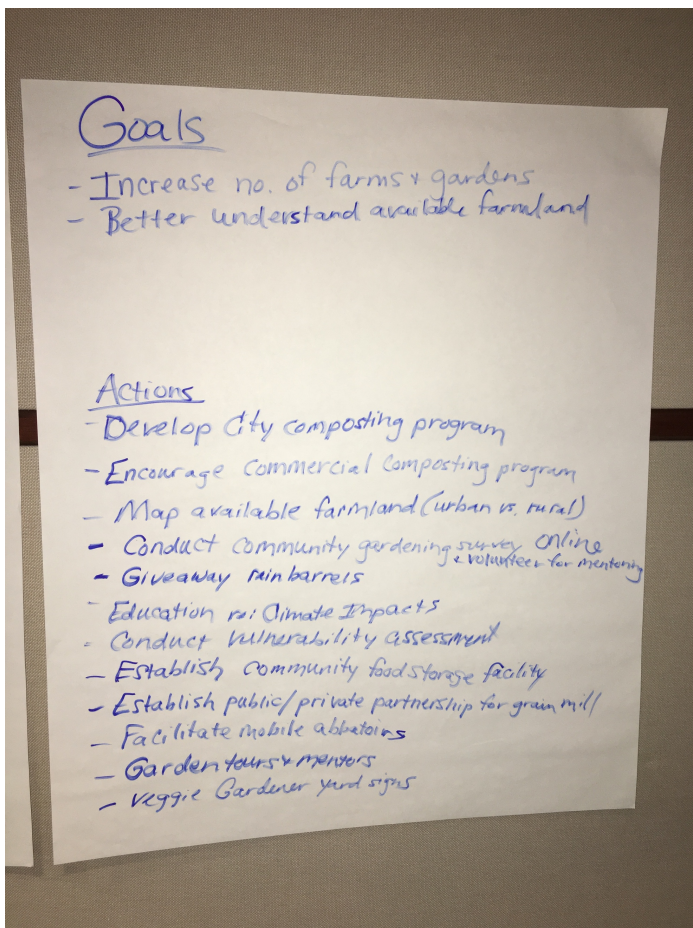 Goals
- Increase no. of farms & gardens
- Better understand available farmland
Actions
- Develop City composting program
- Encourage commercial composting program
- Map available farmland (urban vs. rural)
- Conduct community gardening survey online
& volunteer for mentoring
- Giveaway rain barrels
- Education re: Climate Impacts
- Conduct vulnerability assessment
- Establish community food storage facility
- Establish public/private partnership for grain mill
- Facilitate mobile abbatoirs
- Garden tours & mentors
- Veggie Gardener yard signs